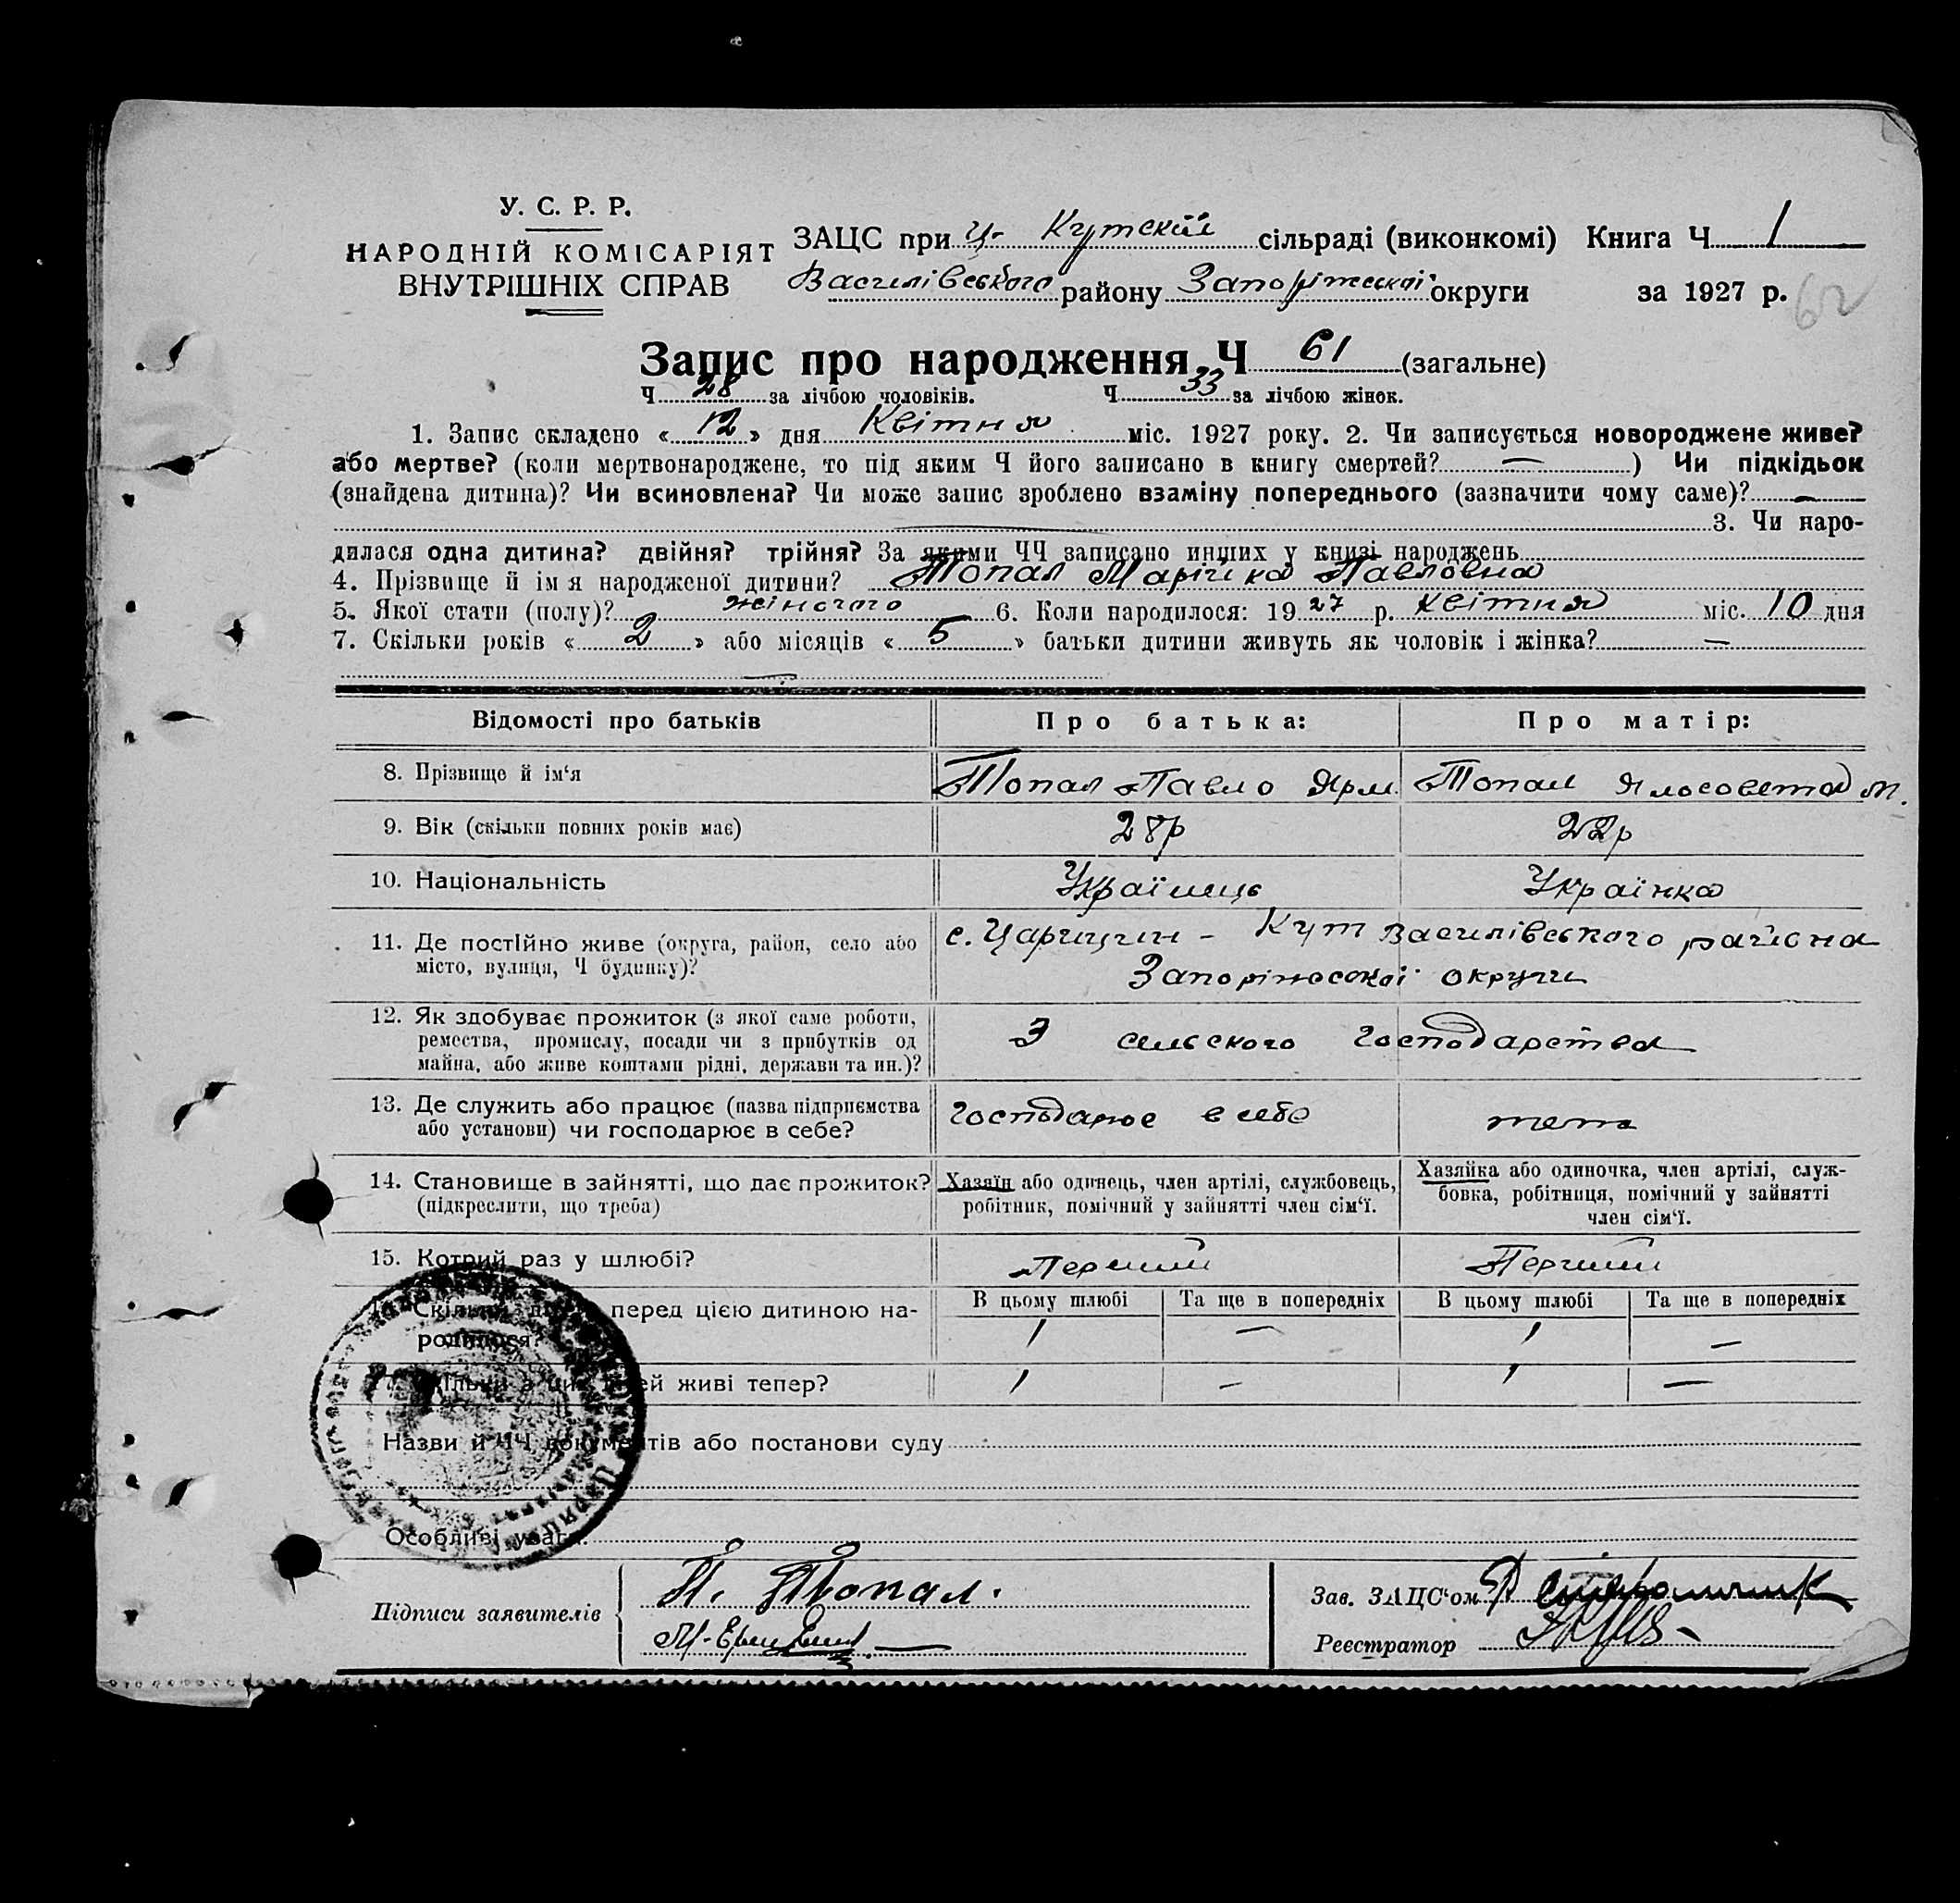 У. С. Р. Р.
НАРОДНІЙ КОМІСАРІЯТ
ВНУТРІШНІХ СПРАВ
ЗАЦС при Ц- Кутскій сільраді (виконкомі) Книга Ч 1
Василівського району Запоріжської округи за 1927 р. 62
Запис про народження Ч 61 (загальне)
Ч 28 за лічбою чоловіків. Ч 33 за лічбою жінок.
1. Запис складено « 12 » дня Квітня міс. 1927 року. 2. Чи записується новороджене живе?
або мертве? (коли мертвонароджене, то під яким Ч його записано в книгу смертей? — ) Чи підкідьок
(знайдена дитина)? Чи всиновлена? Чи може запис зроблено взаміну попереднього (зазначити чому саме)? —
3. Чи наро-
дилася одна дитина? двійня? трійня? За якими ЧЧ записано инших у книзі народжень
4. Прізвище й ім я народженої дитини? Топал Марійка Павловна
5. Якої стати (полу)? жіночого 6. Коли народилося: 19 27 р. квітня міс. 10 дня
7. Скільки років « 2 » або місяців « 5 » батьки дитини живуть як чоловік і жінка? —
Відомості про батьків Про батька: Про матір:
8. Прізвище й ім‘я Топал Павло Ярм. Топал Ялосовета М.
9. Вік (скільки повних років має) 28р 22р
10. Національність Українець Українка
11. Де постійно живе (округа, район, село або
місто, вулиця, Ч будинку)?
с. Царицин - Кут Василівського района
Запоріжської округи
12. Як здобуває прожиток (з якої саме роботи,
ремества, промислу, посади чи з прибутків од
майна, або живе коштами рідні, держави та ин.)?
З сельского господарства
13. Де служить або працює (назва підприємства
або установи) чи господарює в себе?
господарює в себе теж
14. Становище в зайнятті, що дає прожиток?
(підкреслити, що треба)
Хазяїн або одинець, член артілі, службовець,
робітник, помічний у зайнятті член сім‘ї.
Хазяйка або одиночка, член артілі, служ-
бовка, робітниця, помічний у зайнятті
член сім‘ї.
15. Котрий раз у шлюбі? Перший Перший
Скільки перед цією дитиною на-
родилося?
В цьому шлюбі Та ще в попередніх В цьому шлюбі Та ще в попередніх
1 — 1 —
17. Скільки з цих дітей живі тепер? 1 — 1 —
Назви й ЧЧ документів або постанови суду
Особливі уваги:
Підписи заявителів П. Топал.
Зав. ЗАЦС‘ом
Реєстратор